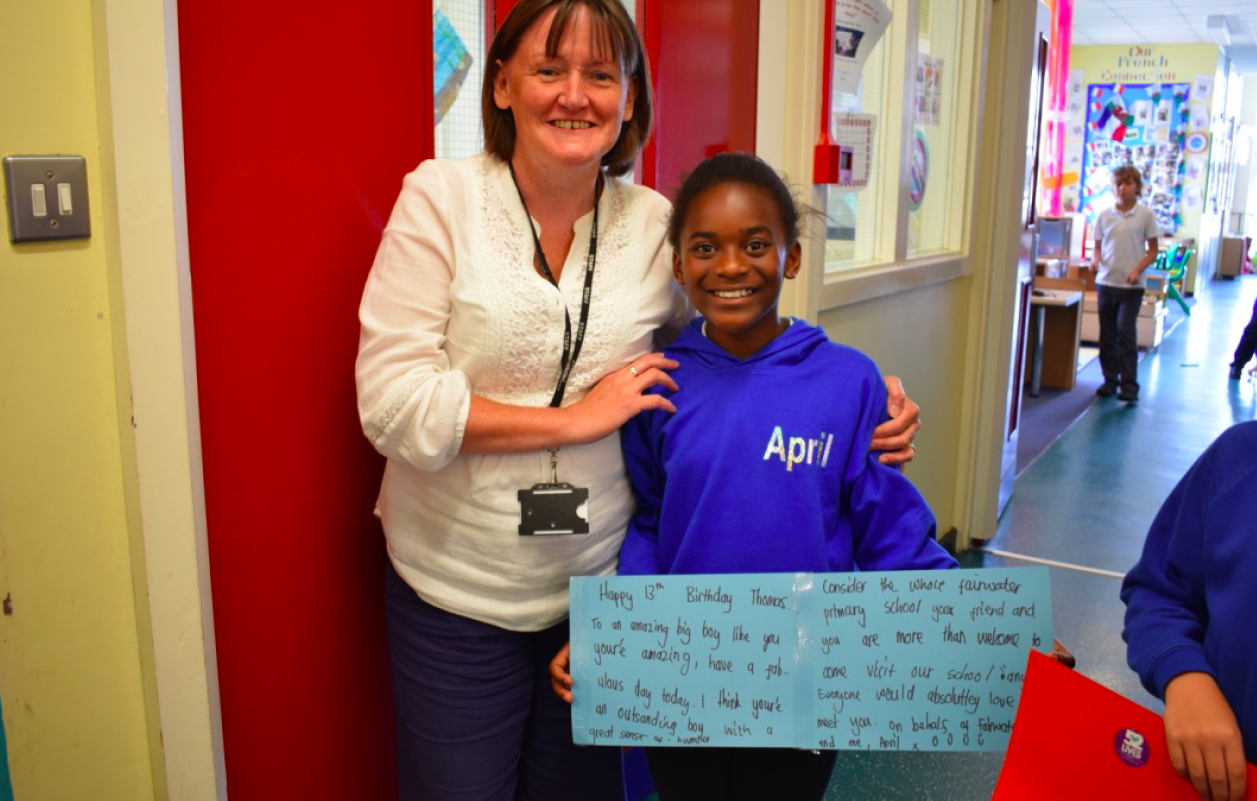 Our
French
Connection
April
Happy 13th Birthday Thomas.
To an amazing big boy like you
your'e amazing, have a fab-
ulous day today. I think your'e
an outsanding boy with a
great sense of humour
Consider the whole fairwater
primary school your friend and
you are more than welcome to
come visit our school
Everyone would absolutley love
meet you. on behalf of Fairwater
and me, April x
52
LIVES